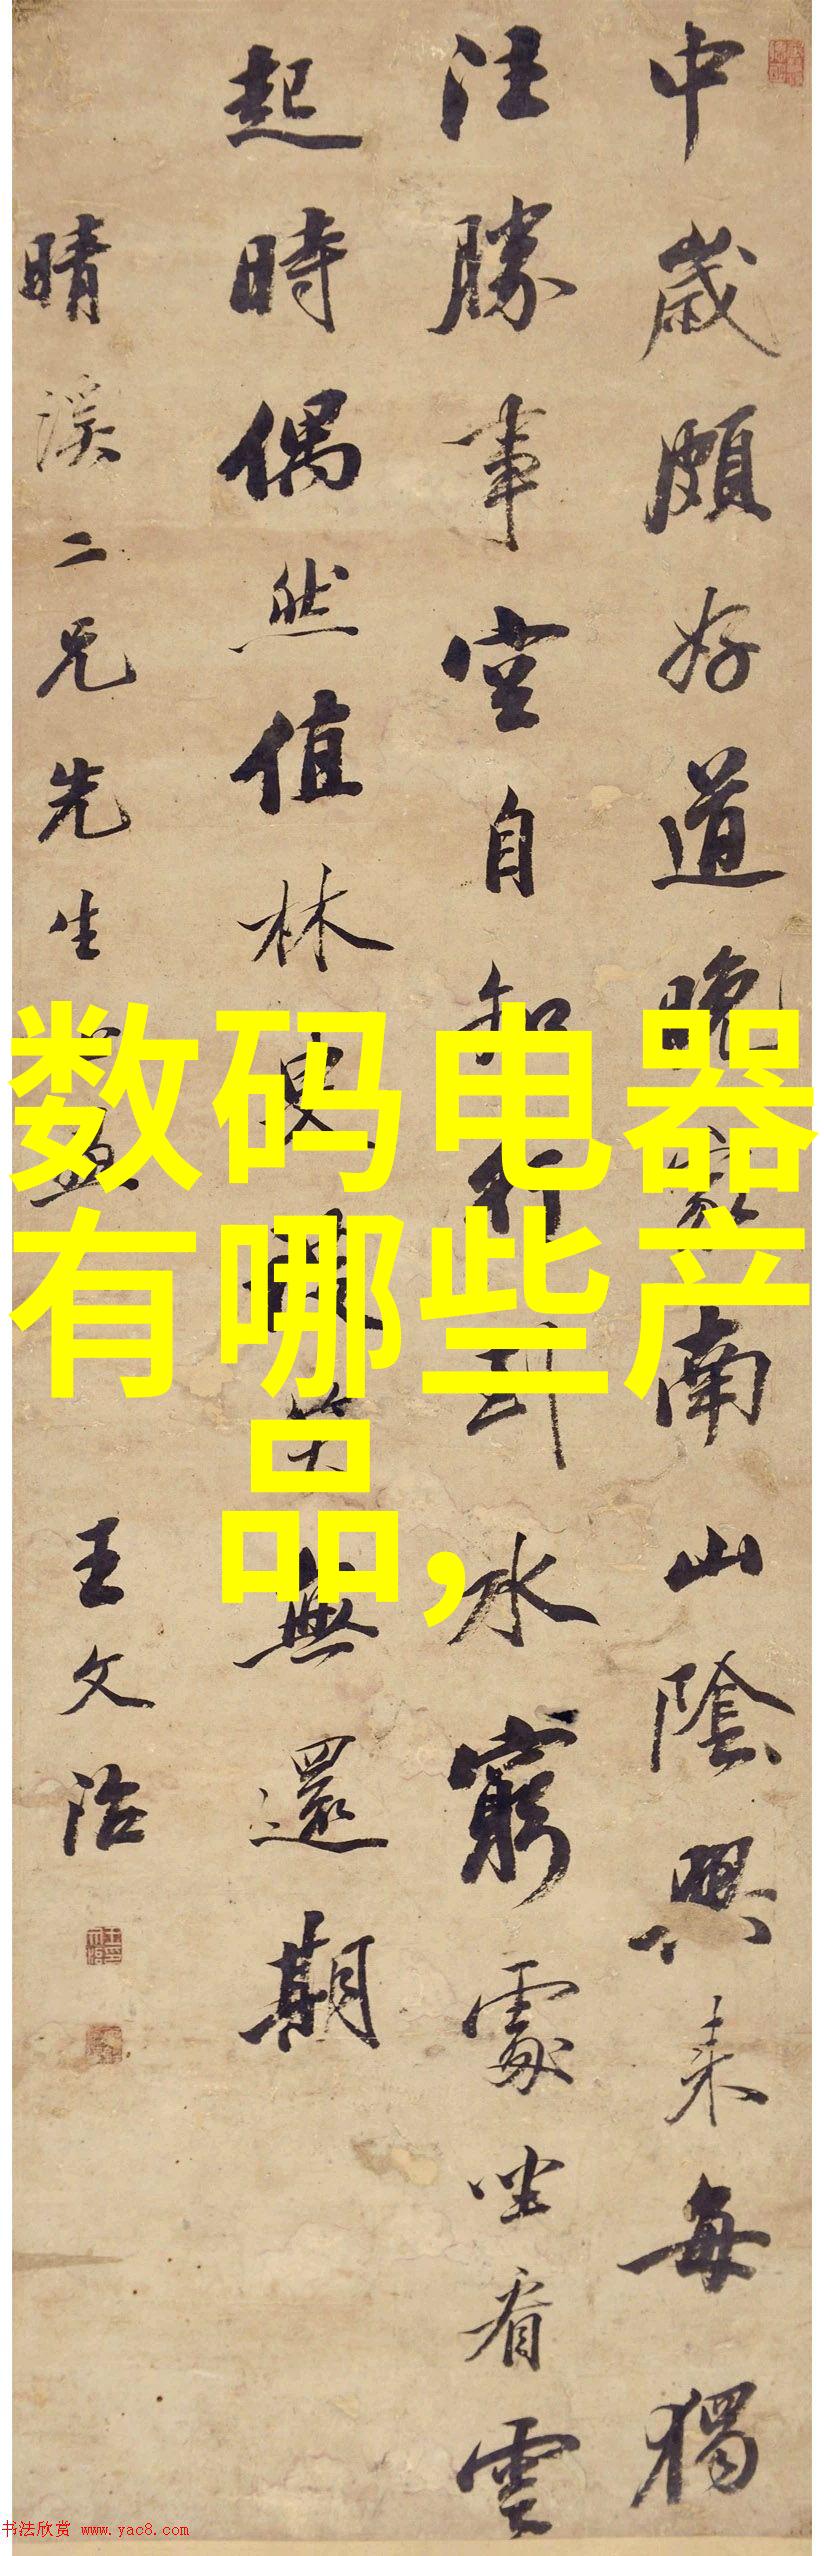 中歲頗好道晚家南山陰興来每獨
往勝事空自知行到水窮處坐看雲
起時偶然值林叟談笑無還期
晴溪二兄先生
王文治
数码电器
有哪些产
品,
书法欣赏 www.yac8.com